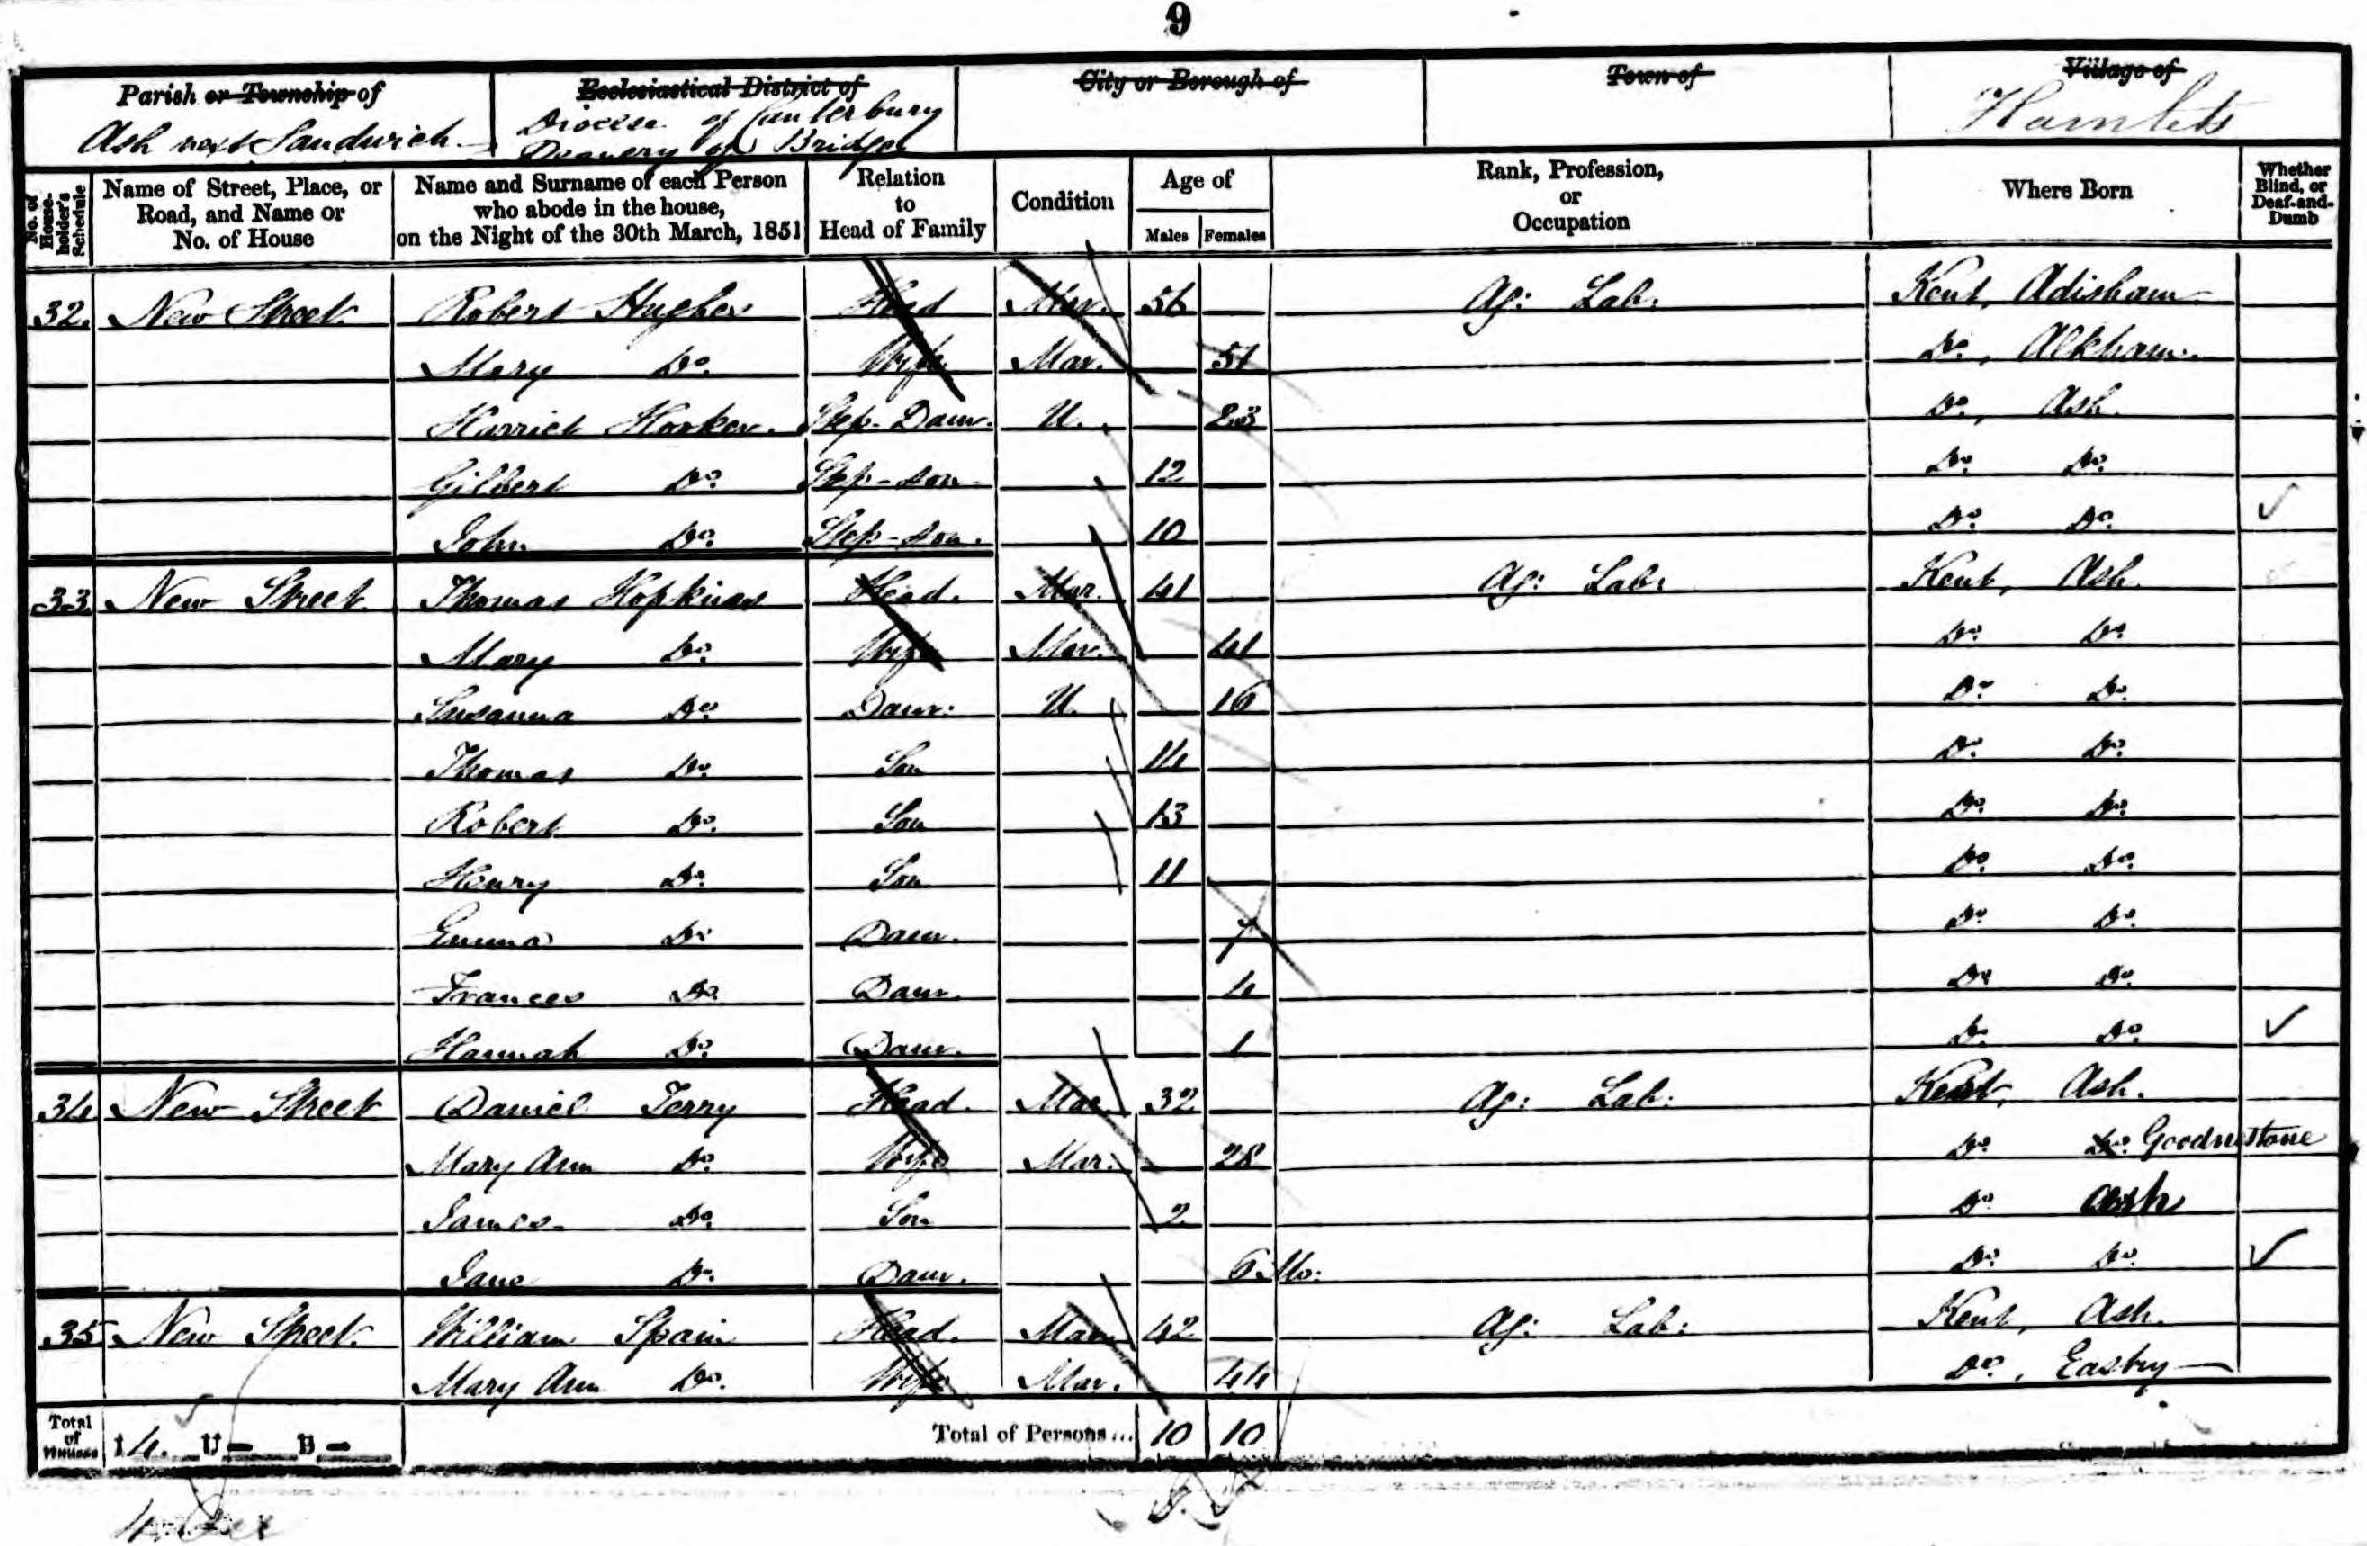 9
Parish or Township of
Ecclesiastical District of
City or Borough of
Town of
Village of
Ash next Sandwich
Diocese of Canterbury
Deanery of Bridge
Hamlets
No. of House-holder's Schedule
Name of Street, Place, or Road, and Name or No. of House
Name and Surname of each Person who abode in the house, on the Night of the 30th March, 1851
Relation to Head of Family
Condition
Age of
Males Females
Rank, Profession, or Occupation
Where Born
Whether Blind, or Deaf-and-Dumb
32. New Street Robert Hughes Head Mar. 56 Ag: Lab: Kent, Adisham
Mary Do. Wife Mar. 51 Do., Alkham.
Harriet Do. Step-Daur. U. 23 Do., Ash.
Gilbert Do. Step-son 12 Do. Do.
John Do. Step-son. 10 Do. Do. ✓
33 New Street Thomas Hopkins Head. Mar. 41 Ag: Lab: Kent, Ash.
Mary Do. Wife Mar. 41 Do. Do.
Susanna Do. Daur: U. 16 Do. Do.
Thomas Do. Son 14 Do. Do.
Robert Do. Son 13 Do. Do.
Henry Do. Son 11 Do. Do.
Emma Do. Daur. 7 Do. Do.
Frances Do. Daur. 4 Do. Do.
Hannah Do. Daur. 1 Do. Do. ✓
34 New Street Daniel Terry Head. Mar. 32 Ag: Lab: Kent, Ash.
Mary Ann Do. Wife Mar. 28 Do. Do. Goodnestone
James Do. Son 2 Do. Ash
Jane Do. Daur. 6 Mo: Do. Do. ✓
35 New Street. William Spain Head. Mar. 42 Ag: Lab: Kent, Ash.
Mary Ann Do. Wife Mar. 44 Do., Eastry
Total of Houses I 4. U — B — Total of Persons... 10 10